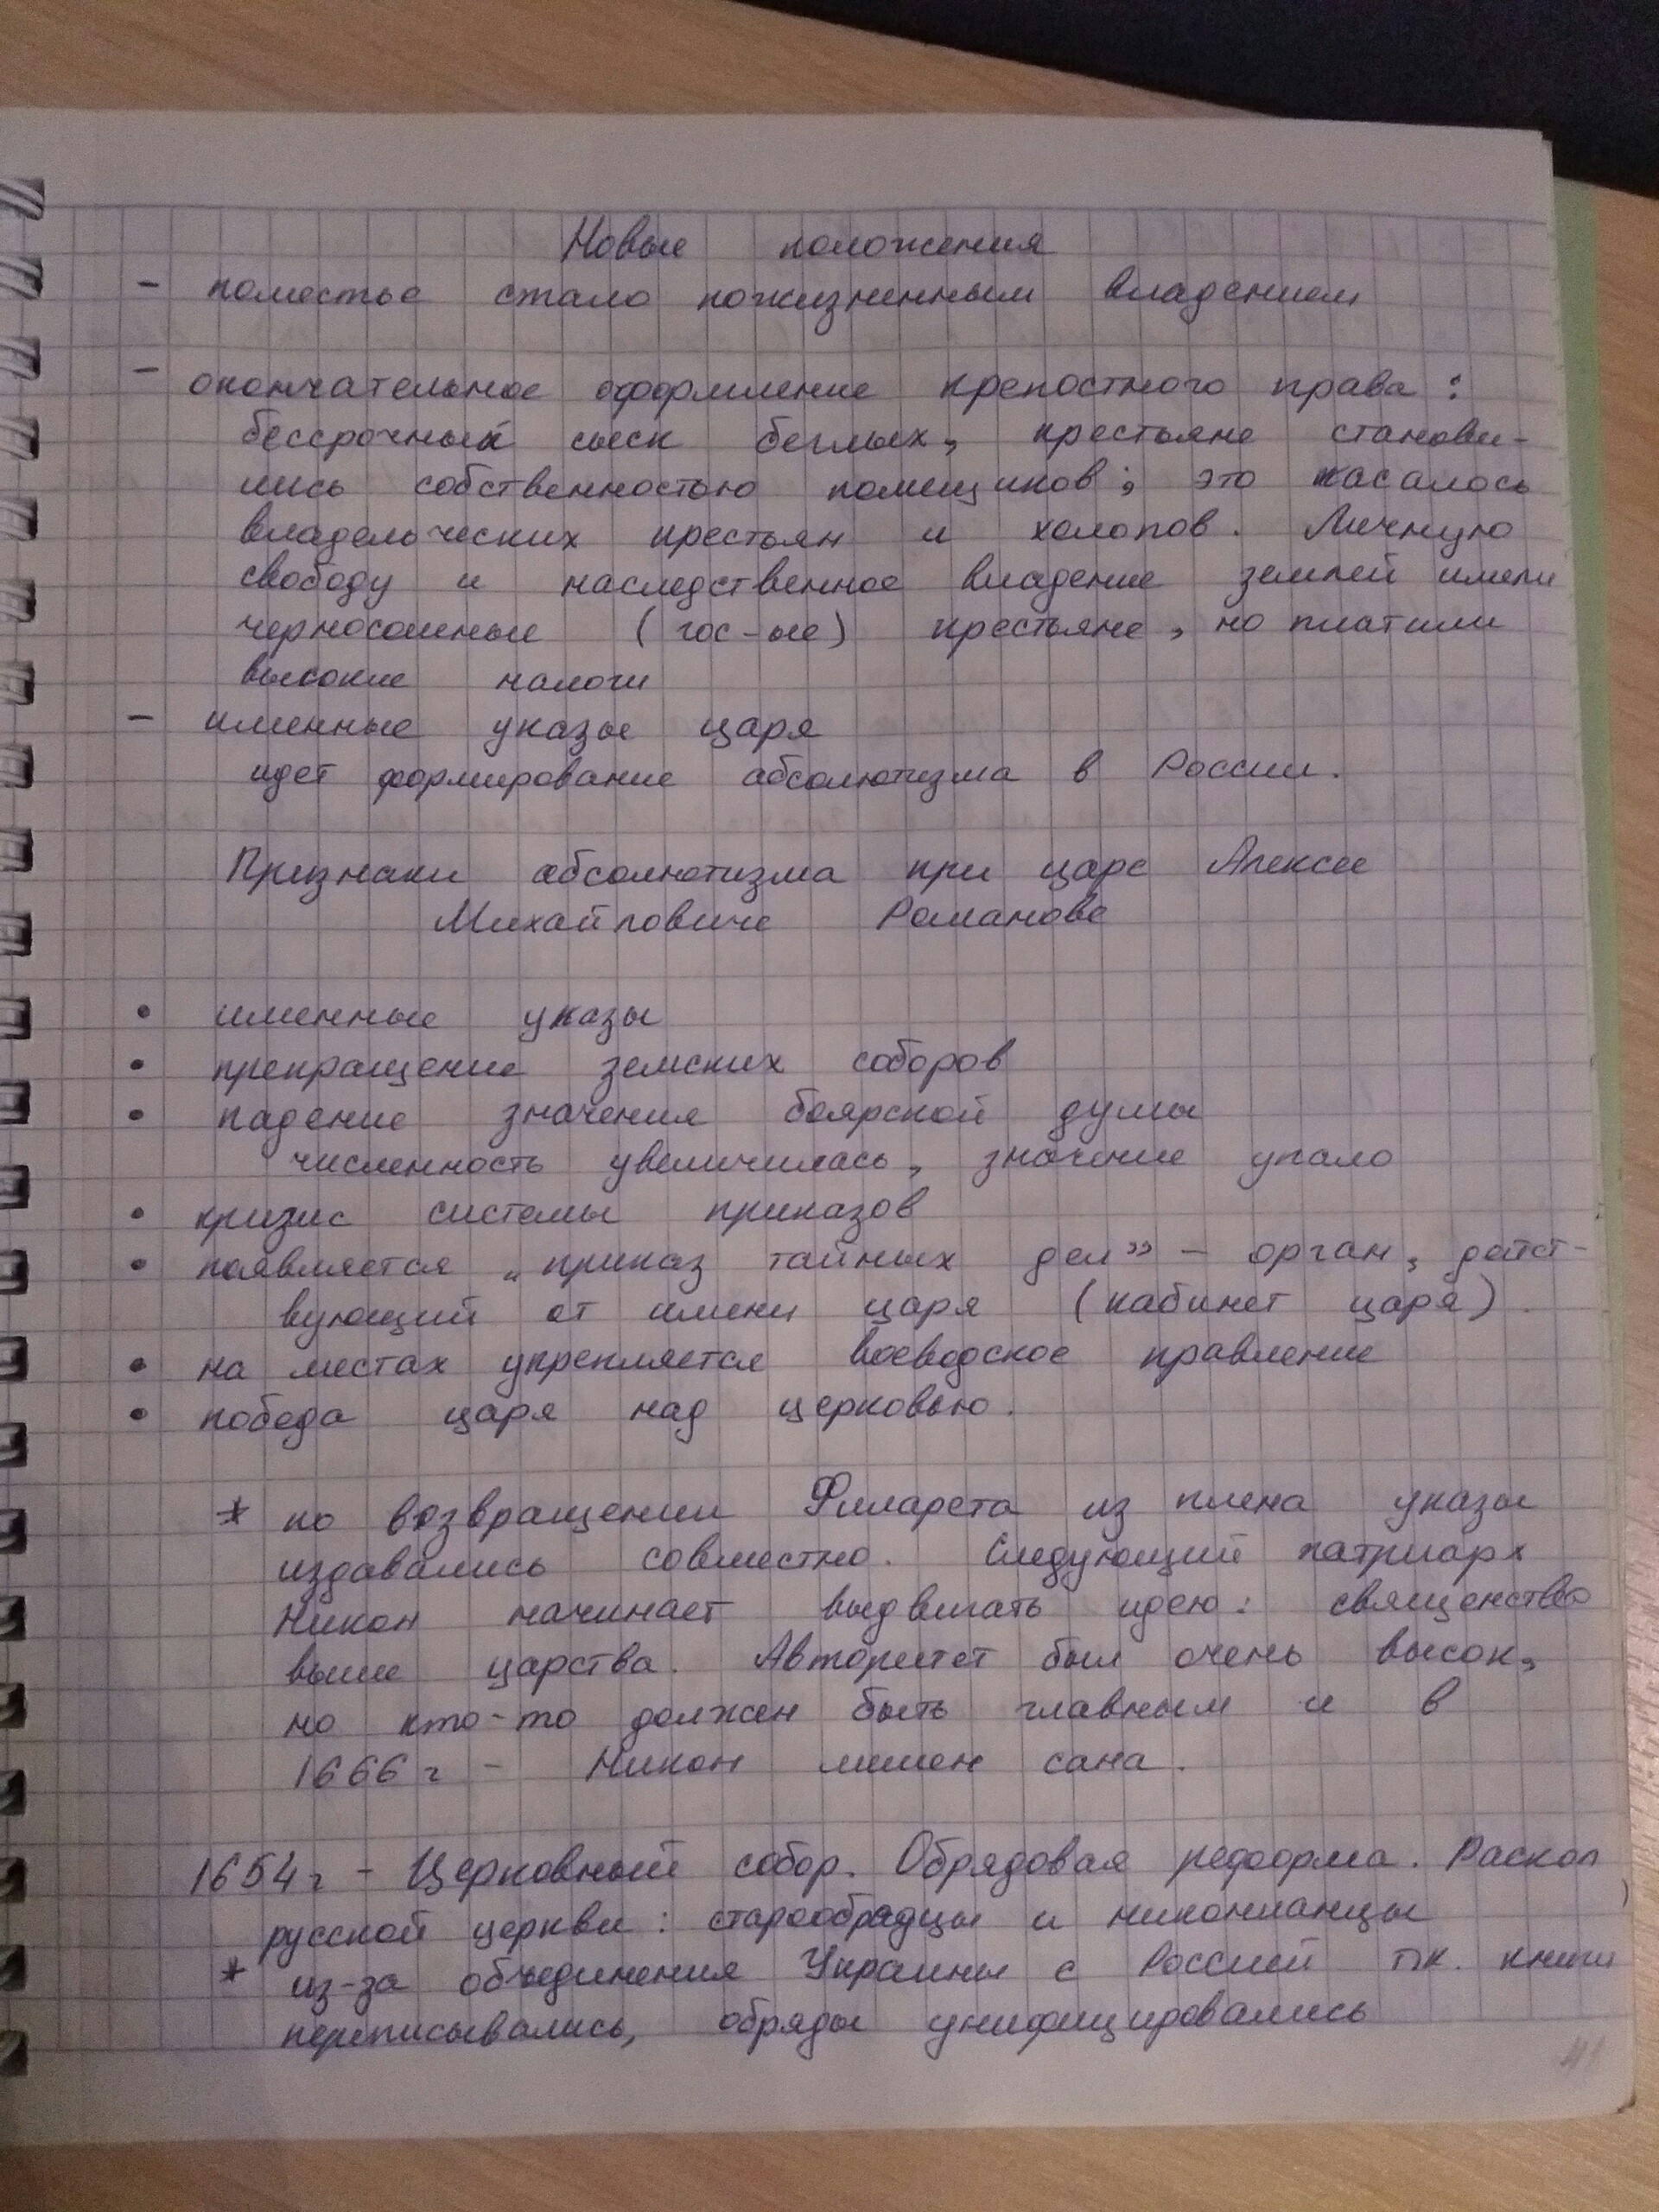 Новые положения
- поместье стало пожизненным владением
- окончательное оформление крепостного права:
бессрочный сыск беглых, крестьяне станови-
лись собственностью помещиков; это касалось
владельческих крестьян и холопов. Личную
свободу и наследственное владение землей имели
черносошные (гос-ые) крестьяне, но платили
высокие налоги
- именные указы царя
идет формирование абсолютизма в России.
Признаки абсолютизма при царе Алексее
Михайловиче Романове
• именные указы
• прекращение земских соборов
• падение значения боярской думы
численность увеличилась, значение упало
• кризис системы приказов
• появляется „приказ тайных дел” - орган, дейст-
вующий от имени царя (кабинет царя).
• на местах укрепляется воеводское правление
• победа царя над церковью.
* по возвращении Филарета из плена указы
издавались совместно. Следующий патриарх
Никон начинает выдвигать идею: священство
выше царства. Авторитет был очень высок,
но кто-то должен быть главным и в
1666 г - Никон лишен сана.
1654 г - Церковный собор. Обрядовая реформа. Раскол
русской церкви: старообрядцы и никонианцы
* из-за объединения Украины с Россией т.к. книги
переписывались, обряды унифицировались